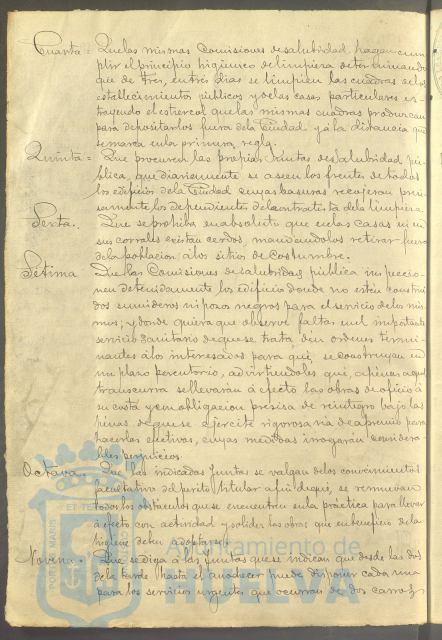 Cuarta = Que las mismas Comisiones de salubridad, hagan cum
plir el principio higiénico de limpieza determinando
que de tres, en tres dias se limpien las cuadras de los
establecimientos públicos y de las casas particulares es
trayendo el estiercol que las mismas cuadras produzcan
para depositarlos fuera de la Ciudad y á la distancia que
se marca en la primera regla.
Quinta = Que procuren las propias Juntas de salubridad pú
blica, que diariamente se aseen los frentes de todos
los edificios de la Ciudad cuyas basuras recojeran preci
samente los dependientes del contratista de la limpieza
Sesta. Que se prohiba en absoluto que en las casas ni en
sus corrales existan cerdos, mandandolos retirar fuera
de la poblacion á los sitios de costumbre.
Sétima Que las Comisiones de salubridad pública inspeccio-
nen detenidamente los edificios donde no esten construi
dos sumideros ni pozos negros para el servicio de los mis
mos; y donde quiera que observe faltas en el importante
servicio sanitario de que se trata den ordenes termi-
nantes á los interesados para que, se construyan en
un plazo perentorio, advirtiendoles que, apenas aquel
transcurra se llevarán á efecto las obras de oficio á
su costa y con obligacion precisa de reintegro bajo las
penas de que se ejercite rigorosa via de apremio para
hacerlas efectivas, cuyas medidas irrogarán considera
bles perjuicios.
Octava. Que las indicadas Juntas se valgan de los conocimientos
facultativos del perito titular a fin de que, se remuevan
todos los obstáculos que se encuentren en la práctica para llevar
á efecto con actividad y solidez las obras que en beneficio de la
higiene deben adoptarse.
Novena. Que se diga á las Juntas que se indican que desde las dos
de la tarde hasta el anochecer puede disponer cada una
para los servicios urgentes que ocurran de dos carros
Ayuntamiento de
HUELVA